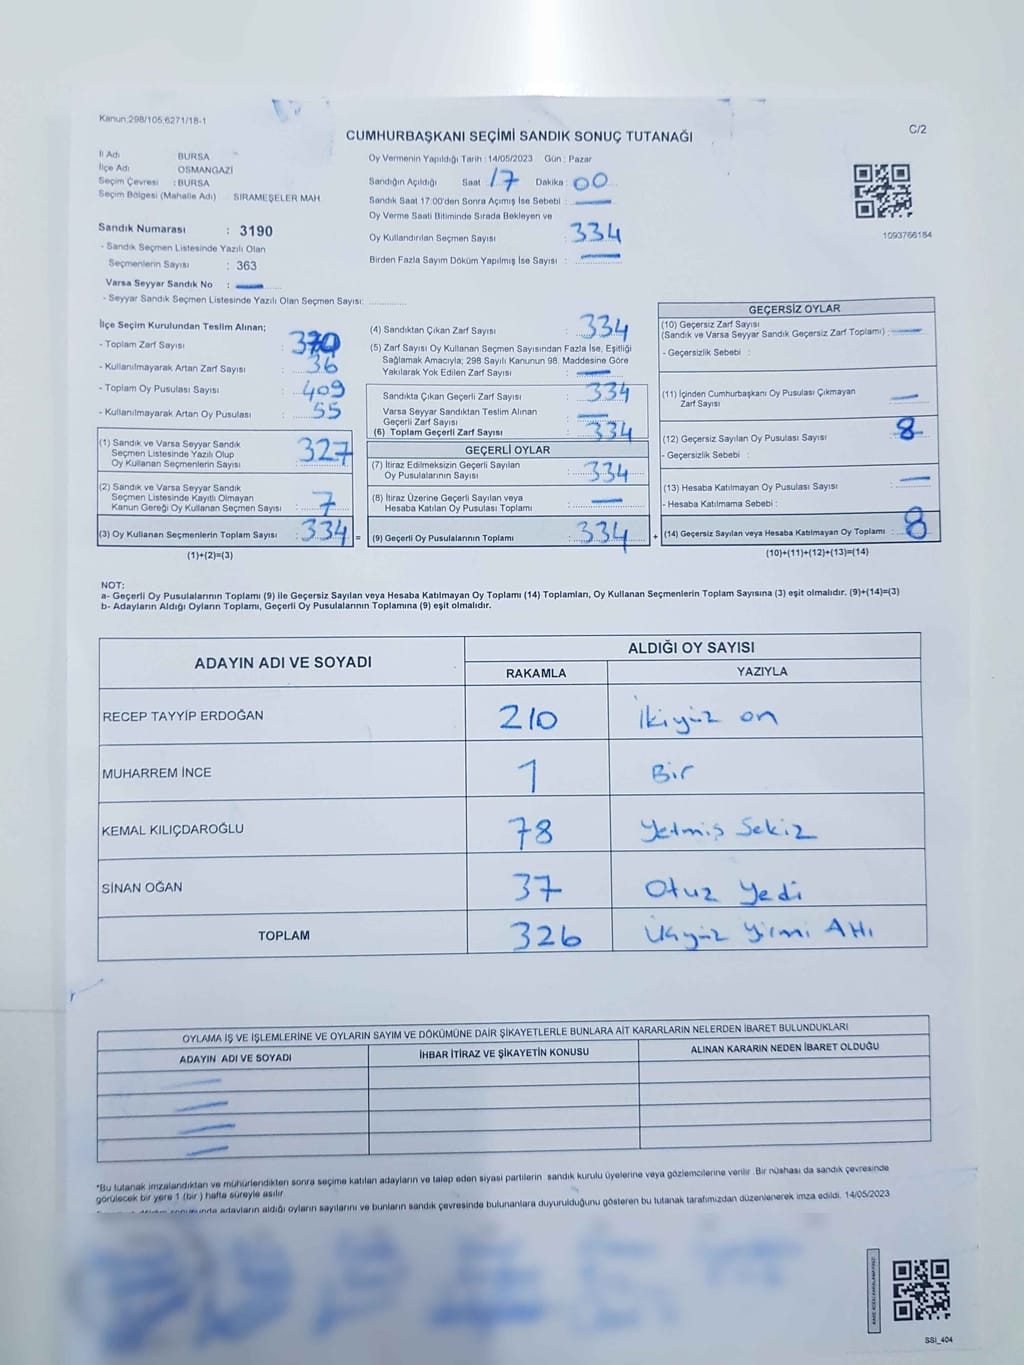 Kanun:298/105,6271/18-1
C/2
CUMHURBAŞKANI SEÇİMİ SANDIK SONUÇ TUTANAĞI
İl Adı BURSA
İlçe Adı OSMANGAZİ
Seçim Çevresi : BURSA
Seçim Bölgesi (Mahalle Adı) SIRAMEŞELER MAH
Sandık Numarası : 3190
- Sandık Seçmen Listesinde Yazılı Olan
Seçmenlerin Sayısı : 363
Varsa Seyyar Sandık No :
- Seyyar Sandık Seçmen Listesinde Yazılı Olan Seçmen Sayısı:
Oy Vermenin Yapıldığı Tarih : 14/05/2023 Gün : Pazar
Sandığın Açıldığı Saat 17 Dakika : 00
Sandık Saat 17:00'den Sonra Açmış İse Sebebi :
Oy Verme Saati Bitiminde Sırada Bekleyen ve
Oy Kullandırılan Seçmen Sayısı : 334
Birden Fazla Sayım Döküm Yapılmış İse Sayısı :
1093766184
İlçe Seçim Kurulundan Teslim Alınan;
- Toplam Zarf Sayısı : 370
- Kullanılmayarak Artan Zarf Sayısı : 36
- Toplam Oy Pusulası Sayısı : 409
- Kullanılmayarak Artan Oy Pusulası : 55
(1) Sandık ve Varsa Seyyar Sandık
Seçmen Listesinde Yazılı Olup
Oy Kullanan Seçmenlerin Sayısı : 327
(2) Sandık ve Varsa Seyyar Sandık
Seçmen Listesinde Kayıtlı Olmayan
Kanun Gereği Oy Kullanan Seçmen Sayısı : 7
(3) Oy Kullanan Seçmenlerin Toplam Sayısı : 334 =
(1)+(2)=(3)
(4) Sandıktan Çıkan Zarf Sayısı : 334
(5) Zarf Sayısı Oy Kullanan Seçmen Sayısından Fazla İse, Eşitliği
Sağlamak Amacıyla; 298 Sayılı Kanunun 98. Maddesine Göre
Yakılarak Yok Edilen Zarf Sayısı :
Sandıkta Çıkan Geçerli Zarf Sayısı : 334
Varsa Seyyar Sandıktan Teslim Alınan
Geçerli Zarf Sayısı :
(6) Toplam Geçerli Zarf Sayısı : 334
GEÇERLİ OYLAR
(7) İtiraz Edilmeksizin Geçerli Sayılan
Oy Pusulalarının Sayısı : 334
(8) İtiraz Üzerine Geçerli Sayılan veya
Hesaba Katılan Oy Pusulası Toplamı :
(9) Geçerli Oy Pusulalarının Toplamı : 334 +
GEÇERSİZ OYLAR
(10) Geçersiz Zarf Sayısı
(Sandık ve Varsa Seyyar Sandık Geçersiz Zarf Toplamı) :
- Geçersizlik Sebebi :
(11) İçinden Cumhurbaşkanı Oy Pusulası Çıkmayan
Zarf Sayısı
(12) Geçersiz Sayılan Oy Pusulası Sayısı : 8
- Geçersizlik Sebebi :
(13) Hesaba Katılmayan Oy Pusulası Sayısı :
- Hesaba Katılmama Sebebi :
(14) Geçersiz Sayılan veya Hesaba Katılmayan Oy Toplamı : 8
(10)+(11)+(12)+(13)=(14)
NOT:
a- Geçerli Oy Pusulalarının Toplamı (9) ile Geçersiz Sayılan veya Hesaba Katılmayan Oy Toplamı (14) Toplamları, Oy Kullanan Seçmenlerin Toplam Sayısına (3) eşit olmalıdır. (9)+(14)=(3)
b- Adayların Aldığı Oyların Toplamı, Geçerli Oy Pusulalarının Toplamına (9) eşit olmalıdır.
ADAYIN ADI VE SOYADI
ALDIĞI OY SAYISI
RAKAMLA YAZIYLA
RECEP TAYYİP ERDOĞAN 210 İkiyüz on
MUHARREM İNCE 1 Bir
KEMAL KILIÇDAROĞLU 78 Yetmiş Sekiz
SİNAN OĞAN 37 Otuz Yedi
TOPLAM 326 Üçyüz Yirmi Altı
OYLAMA İŞ VE İŞLEMLERİNE VE OYLARIN SAYIM VE DÖKÜMÜNE DAİR ŞİKAYETLERLE BUNLARA AİT KARARLARIN NELERDEN İBARET BULUNDUKLARI
ADAYIN ADI VE SOYADI İHBAR İTİRAZ VE ŞİKAYETİN KONUSU ALINAN KARARIN NEDEN İBARET OLDUĞU
*Bu tutanak imzalandıktan ve mühürlendikten sonra seçime katılan adayların ve talep eden siyasi partilerin sandık kurulu üyelerine veya gözlemcilerine verilir. Bir nüshası da sandık çevresinde
görülecek bir yere 1 (bir) hafta süreyle asılır.
adayların aldığı oyların sayılarını ve bunların sandık çevresinde bulunanlara duyurulduğunu gösteren bu tutanak tarafımızdan düzenlenerek imza edildi. 14/05/2023
SSI_404